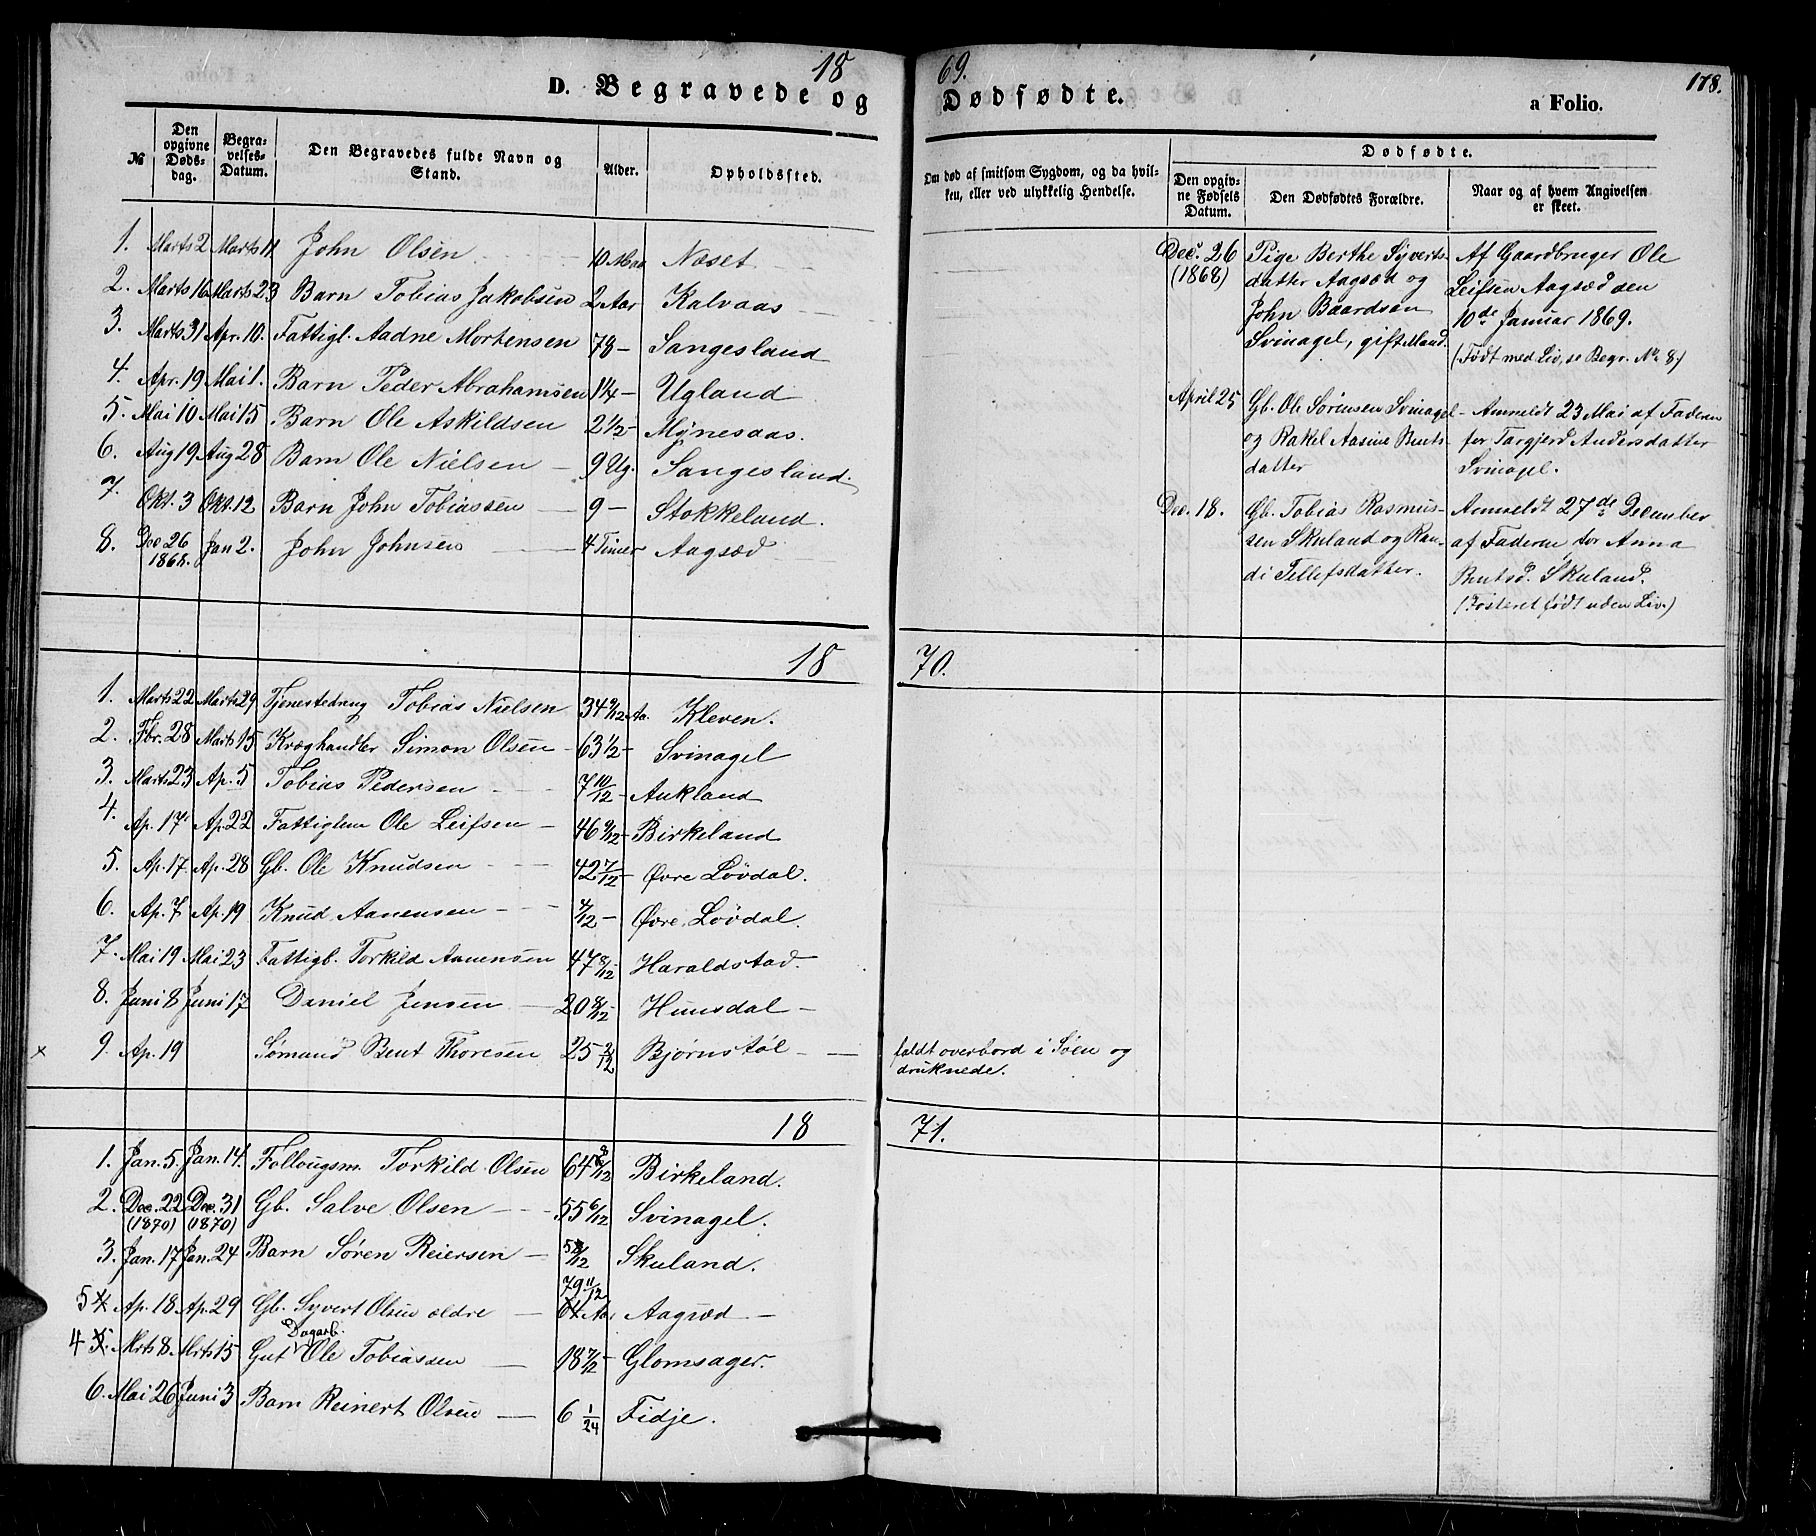 1869.
178.
D. Begravede og Dødfødte.
a Folio.
№
Den opgivne Dødsdag.
Begravelses-Datum.
Den Begravedes fulde Navn og Stand.
Alder.
Opholdssted.
Om død af smitsom Sygdom, og da hvilken, eller ved ulykkelig Hendelse.
Dødfødte.
Den opgivne Fødsels Datum.
Den Dødfødtes Forældre.
Naar og af hvem Angivelsen er skeet.
1. Marts 2 Marts 11 John Olsen 10 Maa Næset
2. Marts 16 Marts 23 Barn Tobias Jakobsen 2 Aar Kalvaas
3. Marts 31 Apr. 10. Fattigl. Aadne Mortensen 78 – Sangesland
4. Apr. 19 Mai 1. Barn Peder Abrahamsen 1¼ – Ugland
5. Mai 10 Mai 15 Barn Ole Askildsen 2½ – Mynesaas.
6. Aug 19 Aug 28 Barn Ole Nielsen – 9 Ug. Sangesland.
7. Okt. 3 Okt. 12 Barn John Tobiassen – 9 – Stokkeland.
8. Dec 26 1868. Jan 2. John Johnsen – 4 Timer Aagsæd
Dec. 26 (1868)
Pige Berthe Syverts-
datter Aagsæd og
John Baardsen
Svinagel, gift Mand.
Af Gaardbruger Ole
Leifsen Aagsæd den
10de Januar 1869.
(Født med Liv, se Begr. No. 8)
April 25
Gb. Ole Sørensen Svinagel
og Rakel Aasine Bents-
datter
Anmeldt 23 Mai af Faderen
for Targjerd Andersdatter
Svinagel.
Dec. 18.
Gb. Tobias Rasmus-
sen Skuland og Ran-
di Tellefsdatter.
Anmeldt 27de December
af Faderen for Anna
Bentsd. Skuland.
(Fosteret født uden Liv.)
1870.
1. Marts 22 Marts 29 Tjenestedreng Tobias Nielsen 34 9/12 Aa. Kleven.
2. Fbr. 28 Marts 15 Kræghandler Simon Olsen – 63 1/2 – Svinagel
3. Marts 23 Ap. 5 Tobias Pedersen 7 10/12 – Aukland
4. Ap. 17 Ap. 22 Fattiglem Ole Leifsen – 46 9/12 – Birkeland
5. Ap. 17 Ap. 28 Gb. Ole Knudsen 42 7/12 – Øvre Løvdal.
6. Ap. 7 Ap. 19 Knud Aanensen 4/12 – Øvre Løvdal.
7. Mai 19 Mai 23 Fattigb. Torkild Aanensen 47 8/12 – Haraldstad.
8. Juni 8 Juni 17 Daniel Jensen – 20 8/12 – Hunsdal –
x 9. Ap. 19 Sømand Bent Thoresen 25 2/12 Bjørnstøl –
faldt overbord i Søen og
druknede.
1871.
1. Jan. 5. Jan. 14. Follougsm. Torkild Olsen 64 /12 Birkeland.
2. Dec. 22 (1870) Dec. 31 (1870) Gb. Salve Olsen 55 6/12 Svinagel.
3. Jan. 17 Jan. 24 Barn Søren Reiersen – 5 /12 Skuland.
5 4 Ap. 18 Ap. 29 Gb. Syvert Olsen ældre – 79 11/12 64 Aar Aagsæd –
4 5. Mrts 8. Mrts 15 Gut Dagarb. Ole Tobiassen – 18 7/12 – Glomsager.
6. Mai 26 Juni 3 Barn Reinert Olsen – 6 1/24 Fidje.